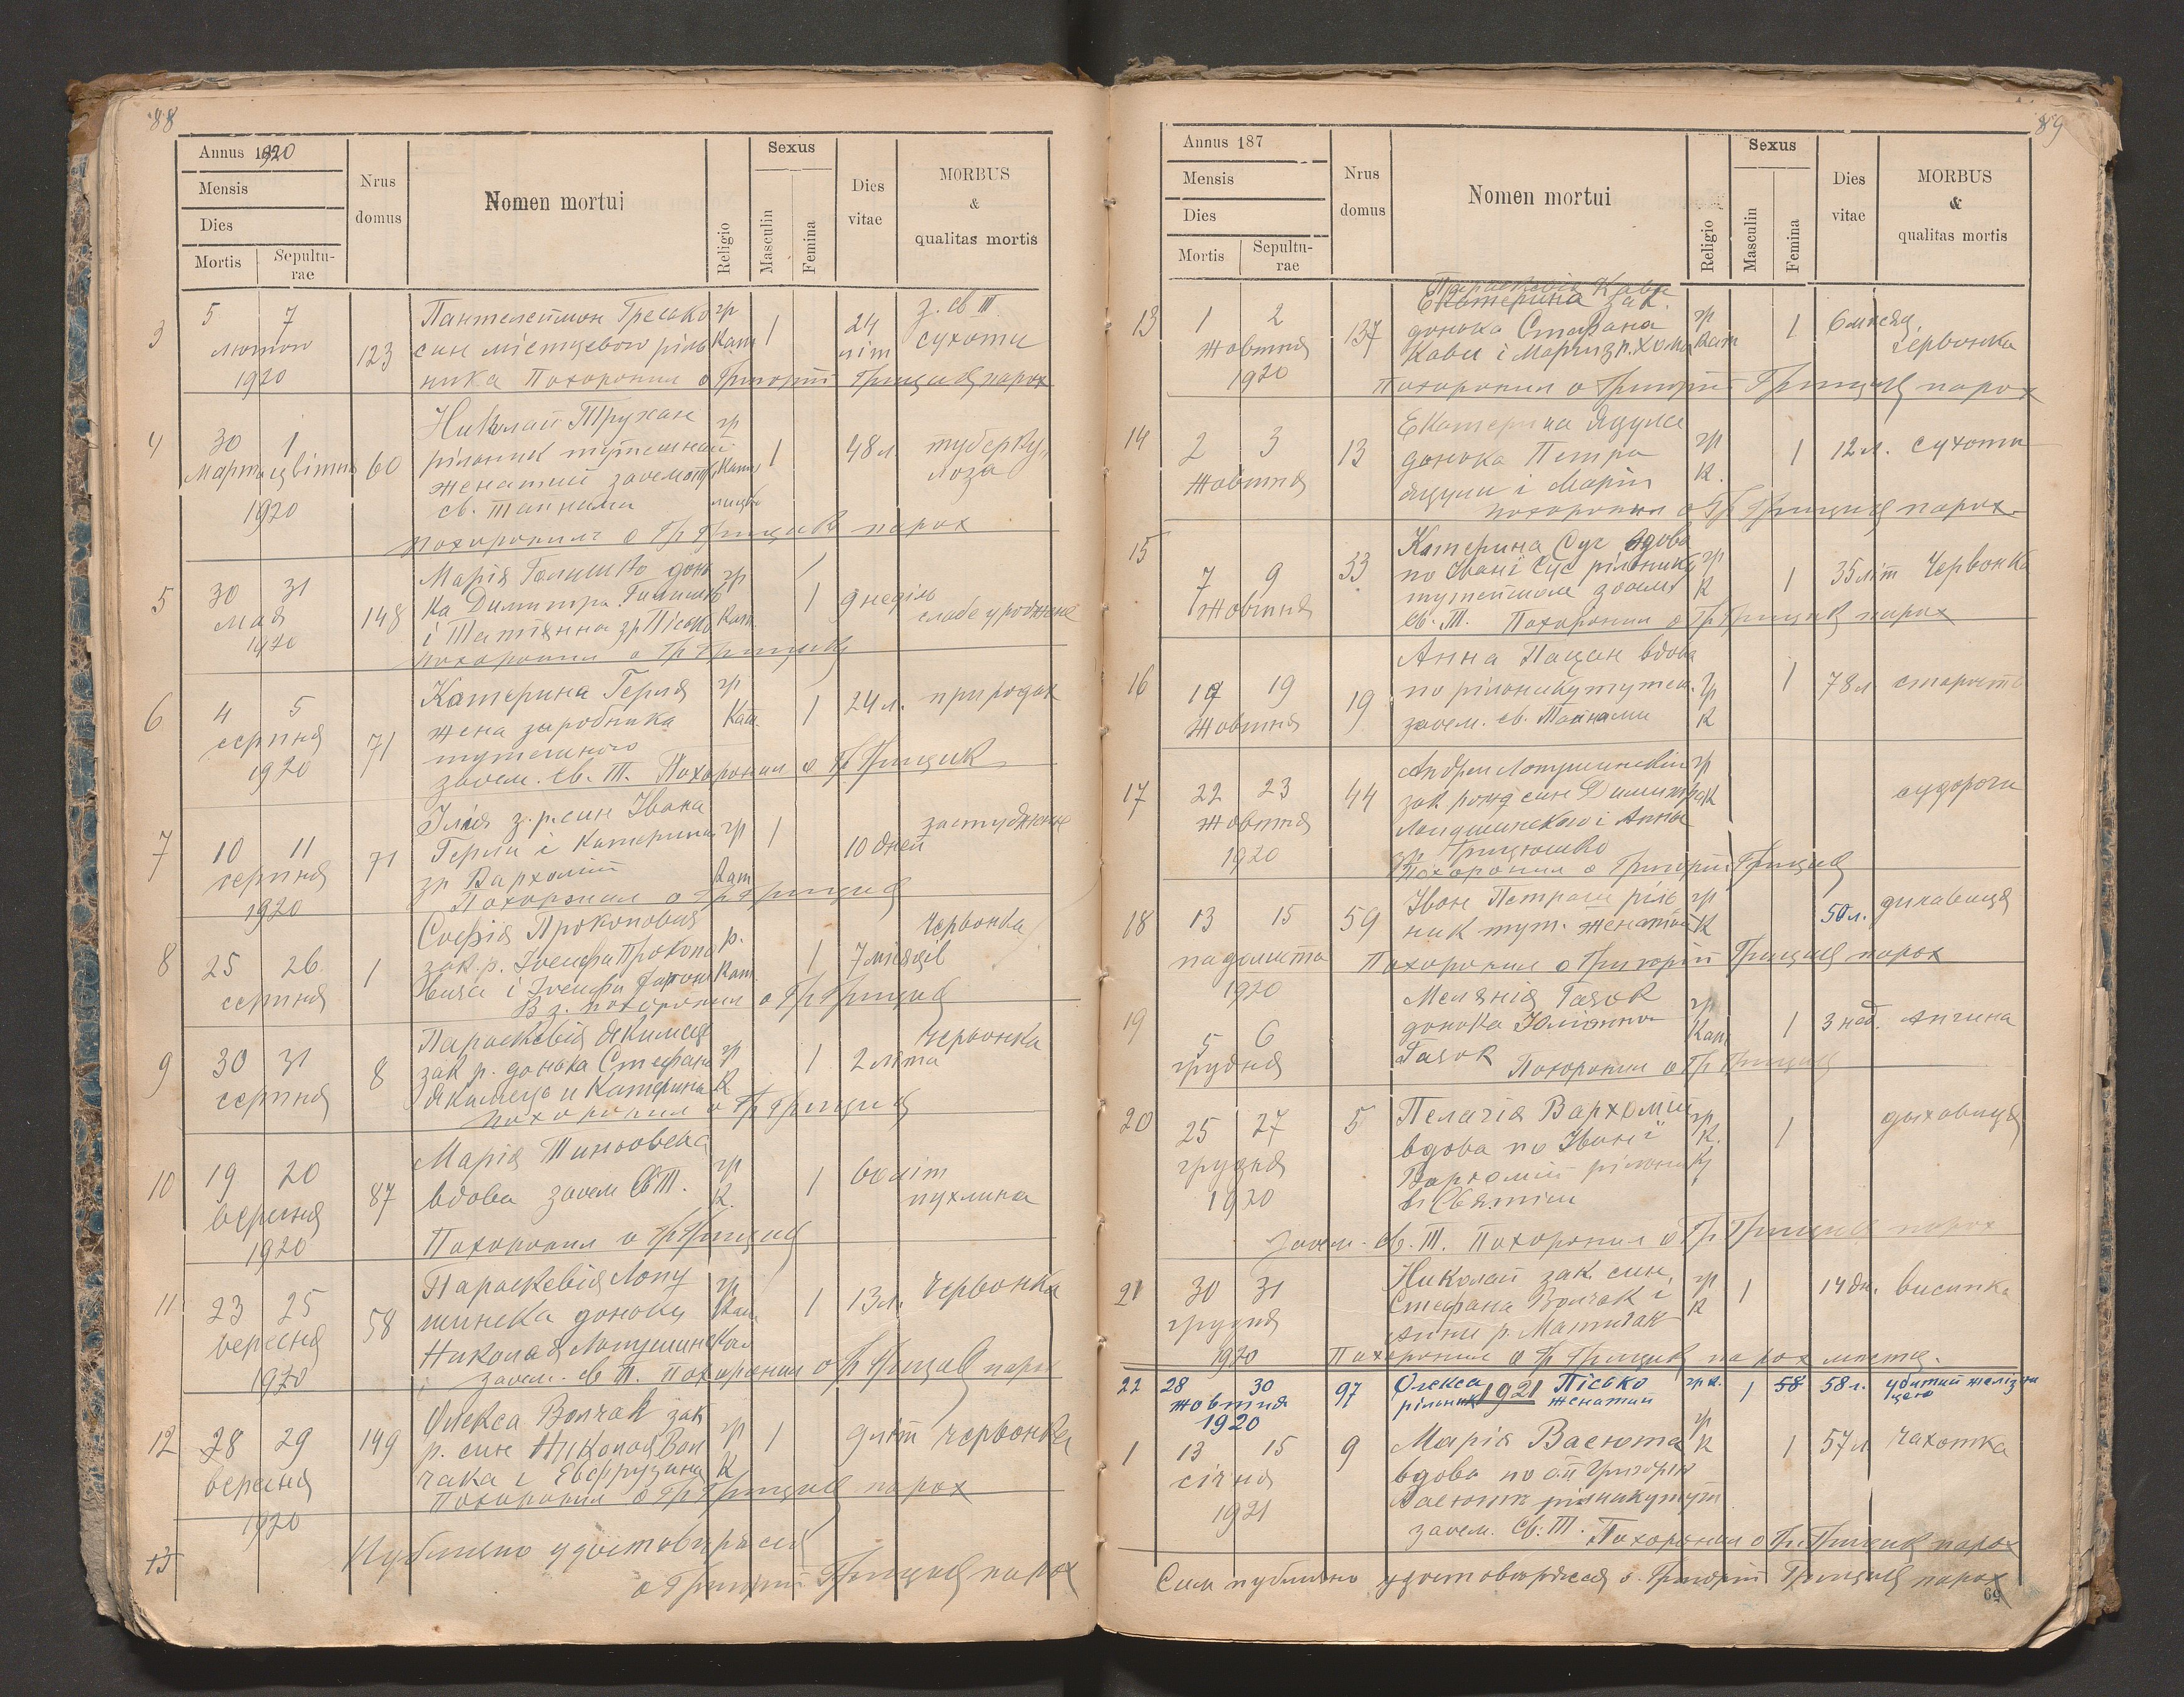 88
Annus 1920
Mensis
Dies
Mortis
Sepulturae
Nrus domus
Nomen mortui
Religio
Sexus
Masculin
Femina
Dies vitae
MORBUS & qualitas mortis
3
5 7
лютого
1920
123
Пантелеймон Гресько
син місцевого рільника
Похоронил о Григорий Грицик парох
гр Кат
1
24 літ
з. св Т.
сухоти
4
30 1
Марта цвітня
1920
60
Николай Тружан
рільник тутешний
женатий заосмотр
св. Тайнами
похоронил о Гр Грицик парох
гр Кат
1
48 л
туберкульоза
5
30 31
мая
1920
148
Марія Голишко донька
Димитра
і Татіянна зр Пісько
похоронил о Гр Грицик
гр Кат.
1
9 неділь
слабе уродження
6
4 5
серпня
1920
71
Катерина Герля
жена заробника
тутешного
заосм. св. Т. Похоронил о Гр Грицик
гр Кат.
1
24 л.
при родах
7
10 11
серпня
1920
71
Ілия з. р. син Івана
Герли і Катерини
зр Вархолій
Похоронил о Гр Грицик
гр Кат
1
10 дней
застудження
8
25 26
серпня
1
Софія Прокопович
зак. р. Іосифа Прокоповича
похоронил о Гр Грицик
Кат.
1
7 місяців
Червонка
9
30 31
серпня
8
Параскевія Якимець
зак р. донька Стефана
Якимець и Катерина
похоронил о Гр Грицик
гр К.
1
2 літа
Червонка
10
19 20
вересня
1920
87
Марія
вдова заосм св Т.
Похоронил о Гр Грицик
гр К.
1
літ
пухлина
11
23 25
вересня
1920
58
Параскевія Лопушинска
донька
Николая Лопушинс
заосм. св Т. Похоронил о Гр Грицик парох
гр Кат
1
13 л.
Червонка
12
28 29
вересня
1920
149
Олекса Волчак зак
р. син Николая Волчака
і Евфрузина
Похоронил о Гр Грицик парох
гр К
1
9 літ
червонка
13
Публично удостовіряєся
о Григорий Грицик парох
89
Annus 187
Mensis
Dies
Mortis
Sepulturae
Nrus domus
Nomen mortui
Religio
Sexus
Masculin
Femina
Dies vitae
MORBUS & qualitas mortis
13
1 2
Жовтня
1920
137
Параскевія Кави
Екатерина зак.
донька Стефана
Кави і Марти зр. Хома
Похоронил о Григорий Грицик парох
гр Кат
1
6 місяц.
Червонка
14
2 3
Жовтня
13
Екатерина Яцула
донька Петра
Яцули і Марія
похоронил о Гр Грицик парох.
гр К.
1
12 л.
сухоти
15
7 9
Жовтня
33
Катерина Сус вдова
по Івані Сус рільнику
тутейшом заосм
св. Т. Похоронил о Гр Грицик парох
гр К
1
35 літ
Червонка
16
19
Жовтня
19
Анна Пацан вдова
по рільнику тутеш.
заосм. св. Тайнами
гр К
1
78 л
старость
17
22 23
Жовтня
1920
44
Андрей Лопушинскій
зак рожд син Димитра
Лопушинского і Анни
зр Грицюшко
Похоронил о Григорий Грицик
гр К
судороги
18
13 15
падолиста
1920
59
Іван Петраш рільник
тут. женатий
Похоронил о Григорий Грицик парох
гр К
50 л.
дихавиця
19
5 6
грудня
Меланія Газок
донька Юлиянна
Газок Похоронил о Гр Грицик
гр Кат
1
3 нед.
Ангина
20
25 27
грудня
1920
5
Пелагія Вархолий
вдова по Івані
Вархолий рільнику
заосм. св. Т. Похоронил о Гр Грицик парох
гр К.
1
дыхавиця
21
30 31
грудня
1920
Николай зак. син,
Стефана Волчак і
Анни р. Матичак
Похоронил о Гр Грицик парох местц.
гр К
1
14 дн.
висипка
22
28 30
жовтня
1920
97
Олекса Пісько
рільник женатий
гр к.
1
58
58 л.
убитий желізницею
1921
1
13 15
січня
1921
9
Марія Васюта
вдова по Григорію
Васюта рільнику тут
заосм. Св: Т. Похоронил о Гр Грицик парох
гр К
1
57 л
чахотка
Сим публично удостовіряєся о. Григорій Грицик парох